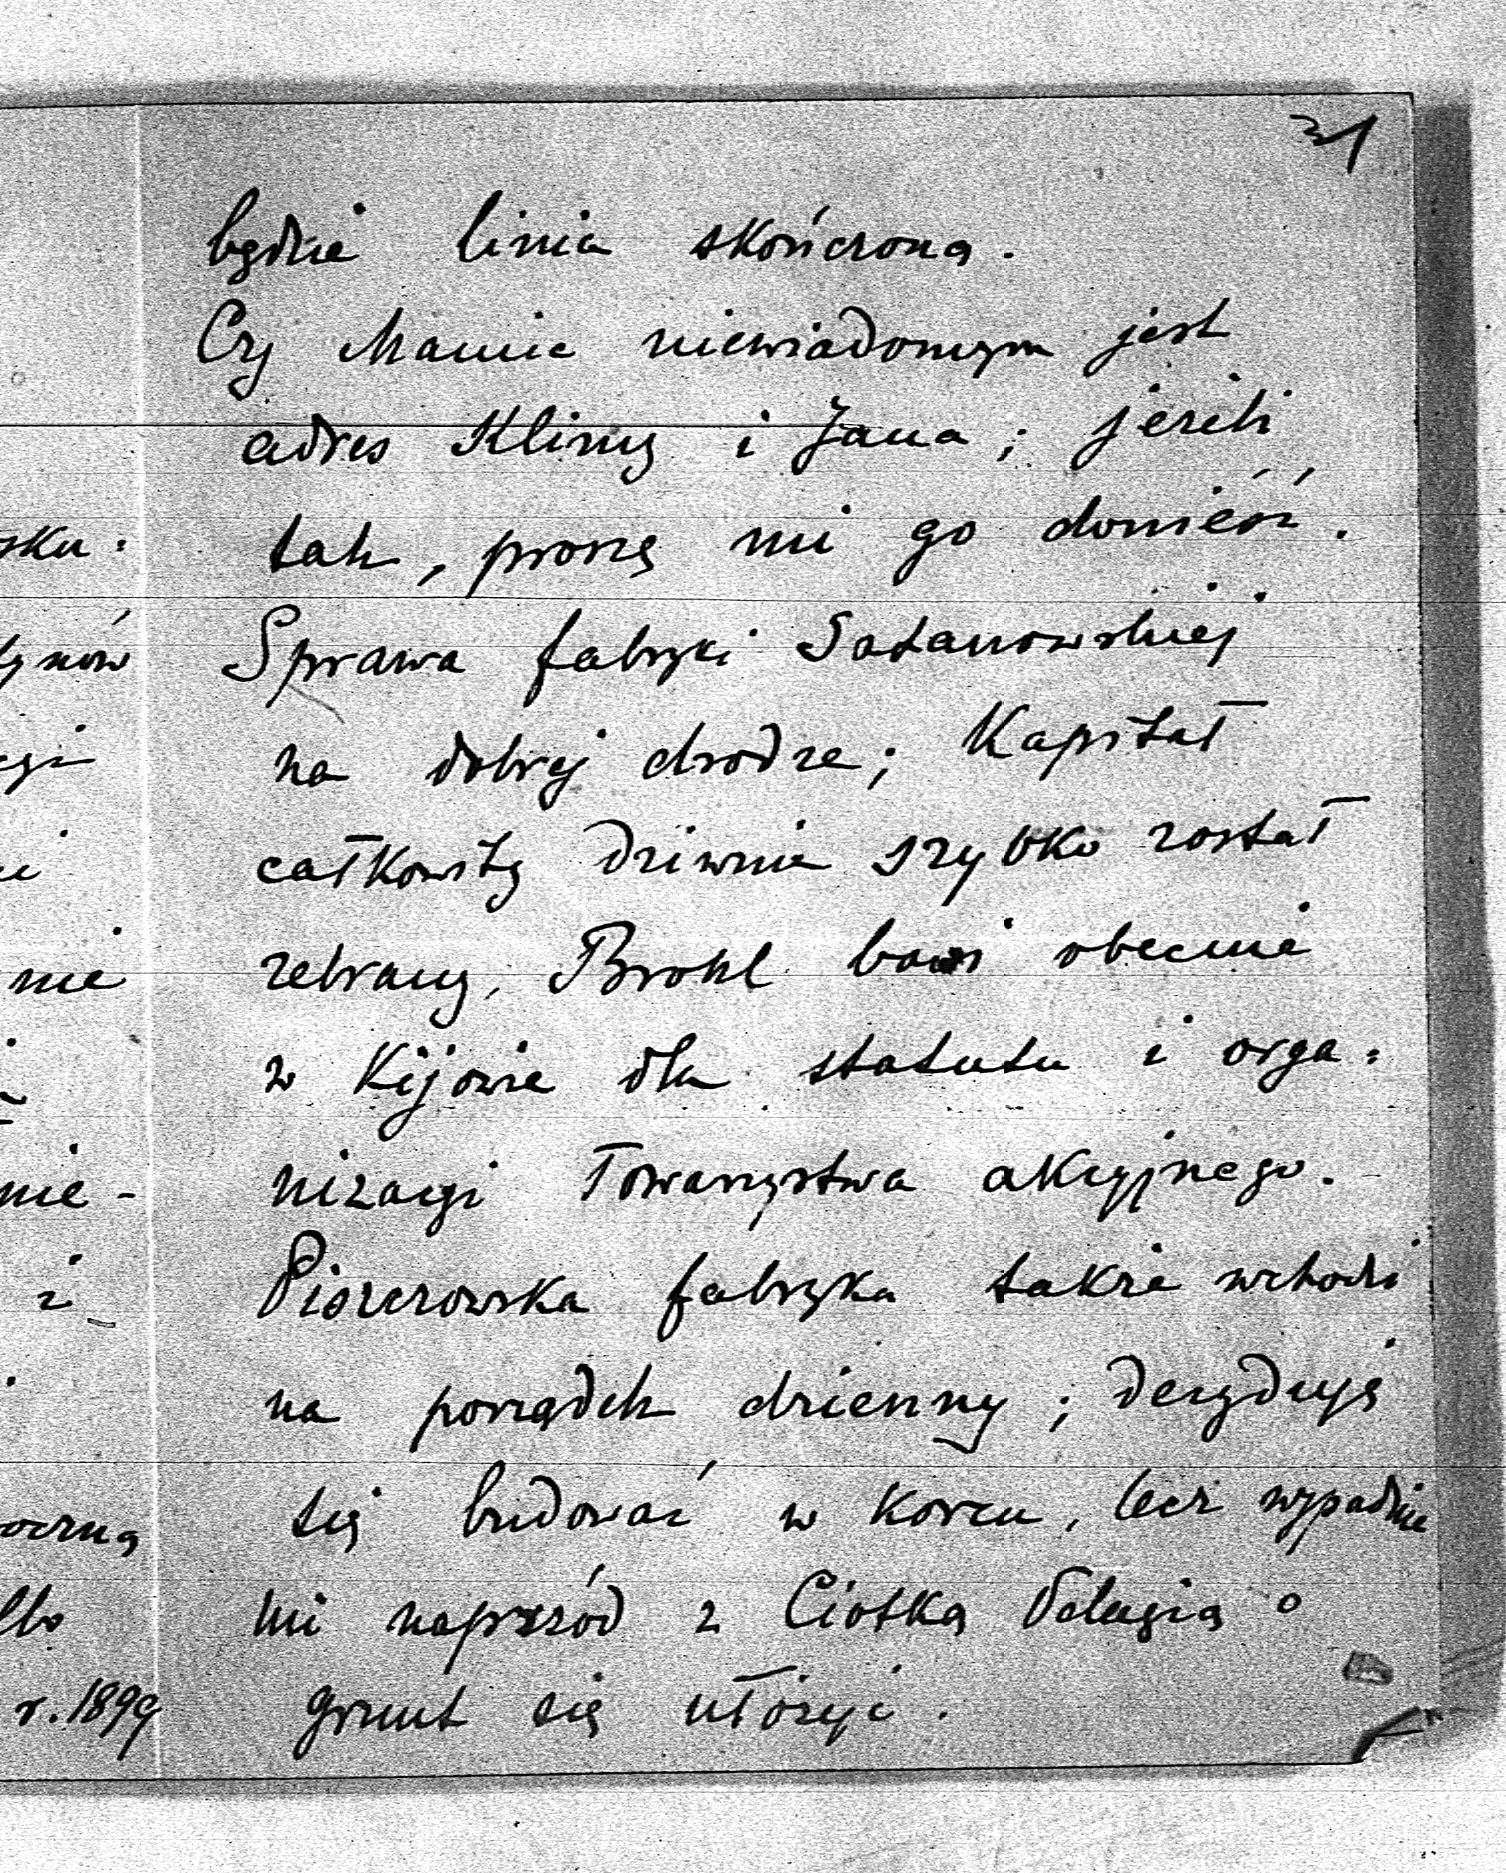 31
będzie linia skończoną.
Czy Mamie niewiadomym jest
adres Klimy i Jana; jeżeli
tak, proszę mi go donieść.
Sprawa fabryki Satanowskiej
na dobrej drodze; Kapitał
całkowity dziwnie szybko został
zebrany, Brohl bawi obecnie
w Kijowie dla statutu i orga=
nizacyi Towarzystwa akcyjnego.
Piszczowska fabryka także wchodzi
na porządek dzienny; decyduję
się budować w Korcu, lecz wypadnie
mi naprzód z Ciotką Pelagią o
grunt się ułożyć.
nie
nie-
i
r. 1899